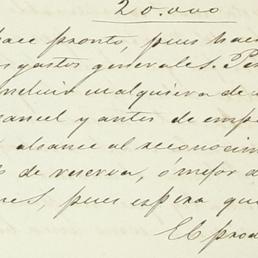 20.000
hace pronto, pues hac
gastos generales. Per
incluir cualquiera de
arancel y antes de emp
alcance al reconocim
de reserva, ó mejor d
es, pues espera que
El prod